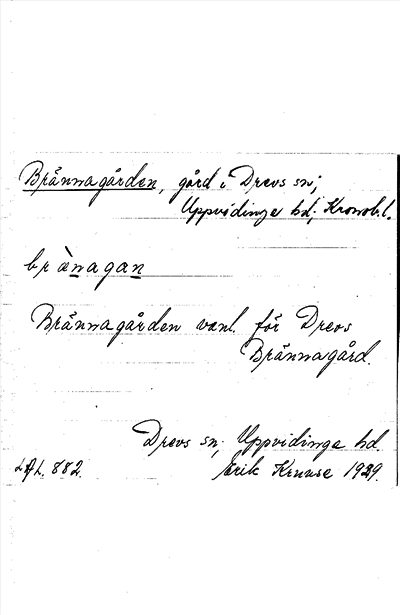 Brännagården, gård i Drevs sn;
Uppvidinge hd; Kronob. l.
brànagan
Brännagården vanl. för Drevs
Brännagård.
Drevs sn; Uppvidinge hd.
LAL. 882. Erik Kruuse 1929.